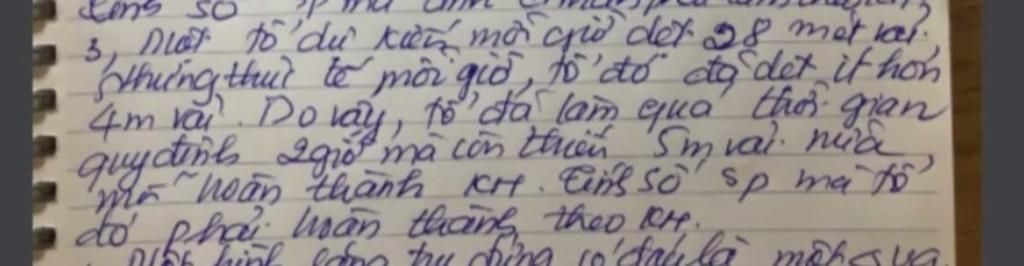 Tính số sp mà
3, Một tổ dự kiến mỗi giờ dệt 28 mét vải.
Nhưng thực tế mỗi giờ, tổ đó đã dệt ít hơn
4m vải. Do vậy, tổ đã làm quá thời gian
quy định 2 giờ mà còn thiếu 5m vải nữa
mới hoàn thành KH. Tính số sp mà tổ
đó phải hoàn thành theo KH.
Một hình lăng trụ đứng có đáy là một